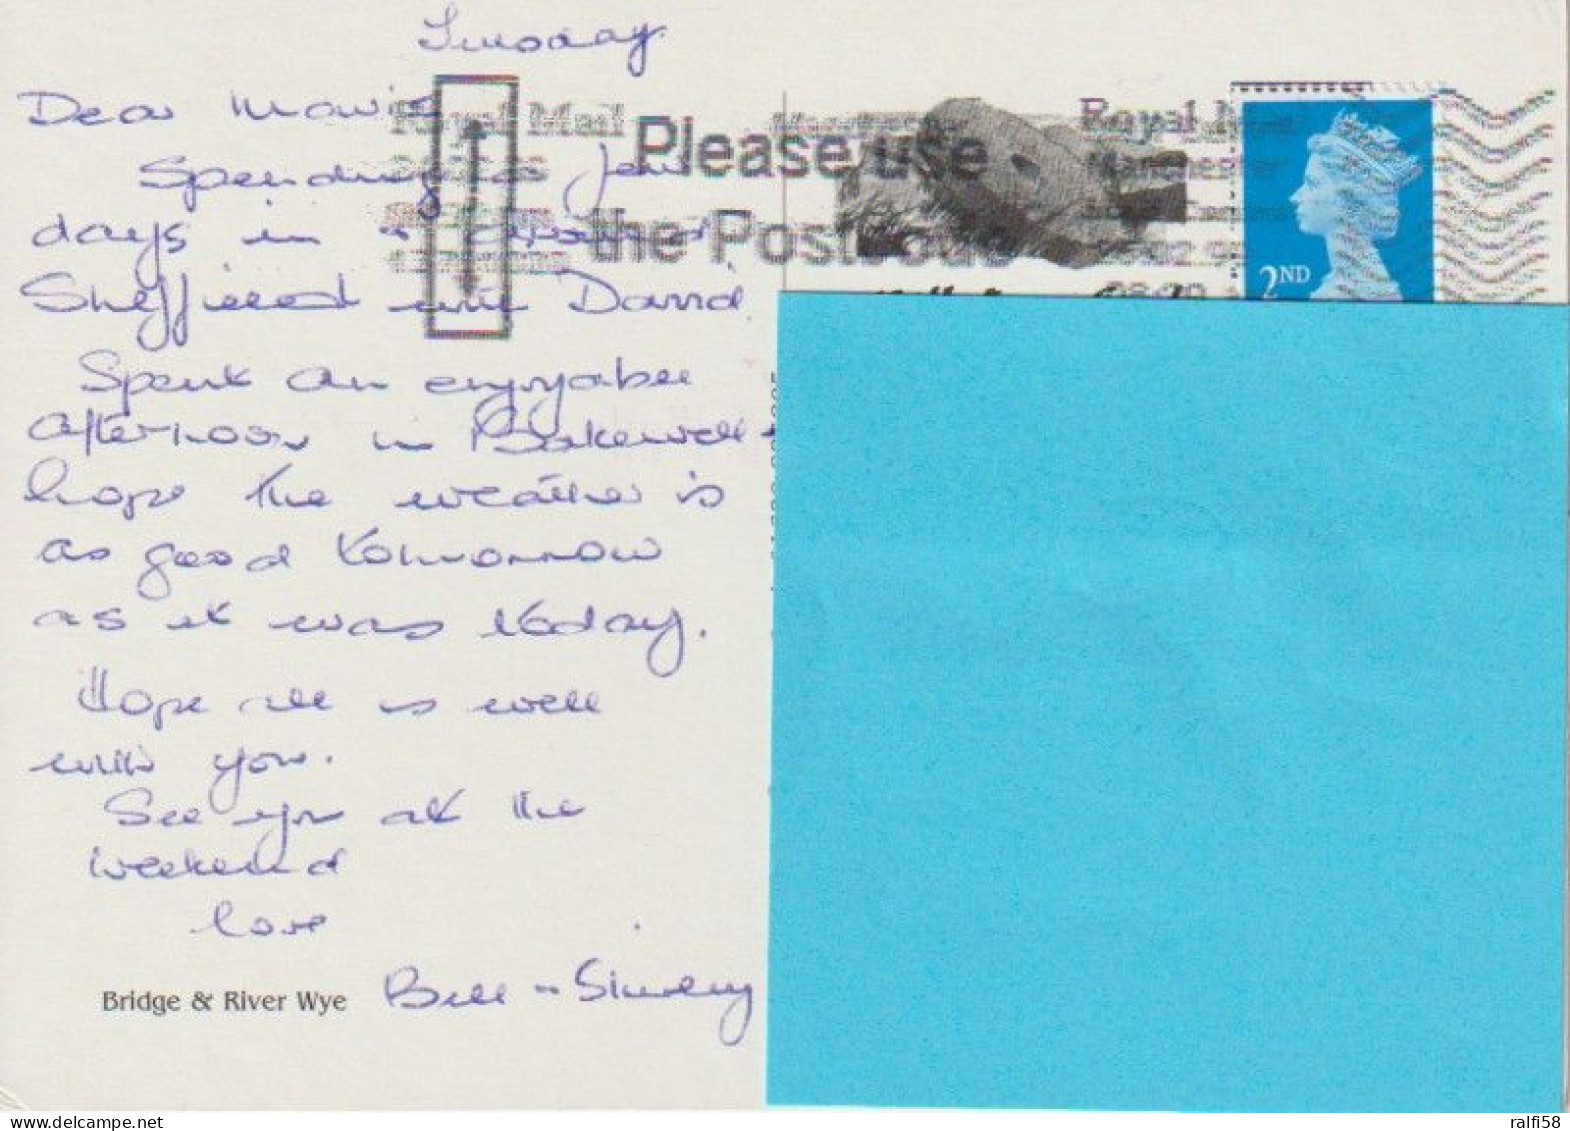 Tuesday
Dear Marie
Royal Mail
Please use
the Postcode
Royal Mail
Manchester
2ND
Spending a few
days in & around
Sheffield with David.
Spent an enjoyable
afternoon in Bakewell -
hope the weather is
as good tomorrow
as it was today.
Hope all is well
with you.
See you at the
weekend
love
Bridge & River Wye
Bill
ralfi58